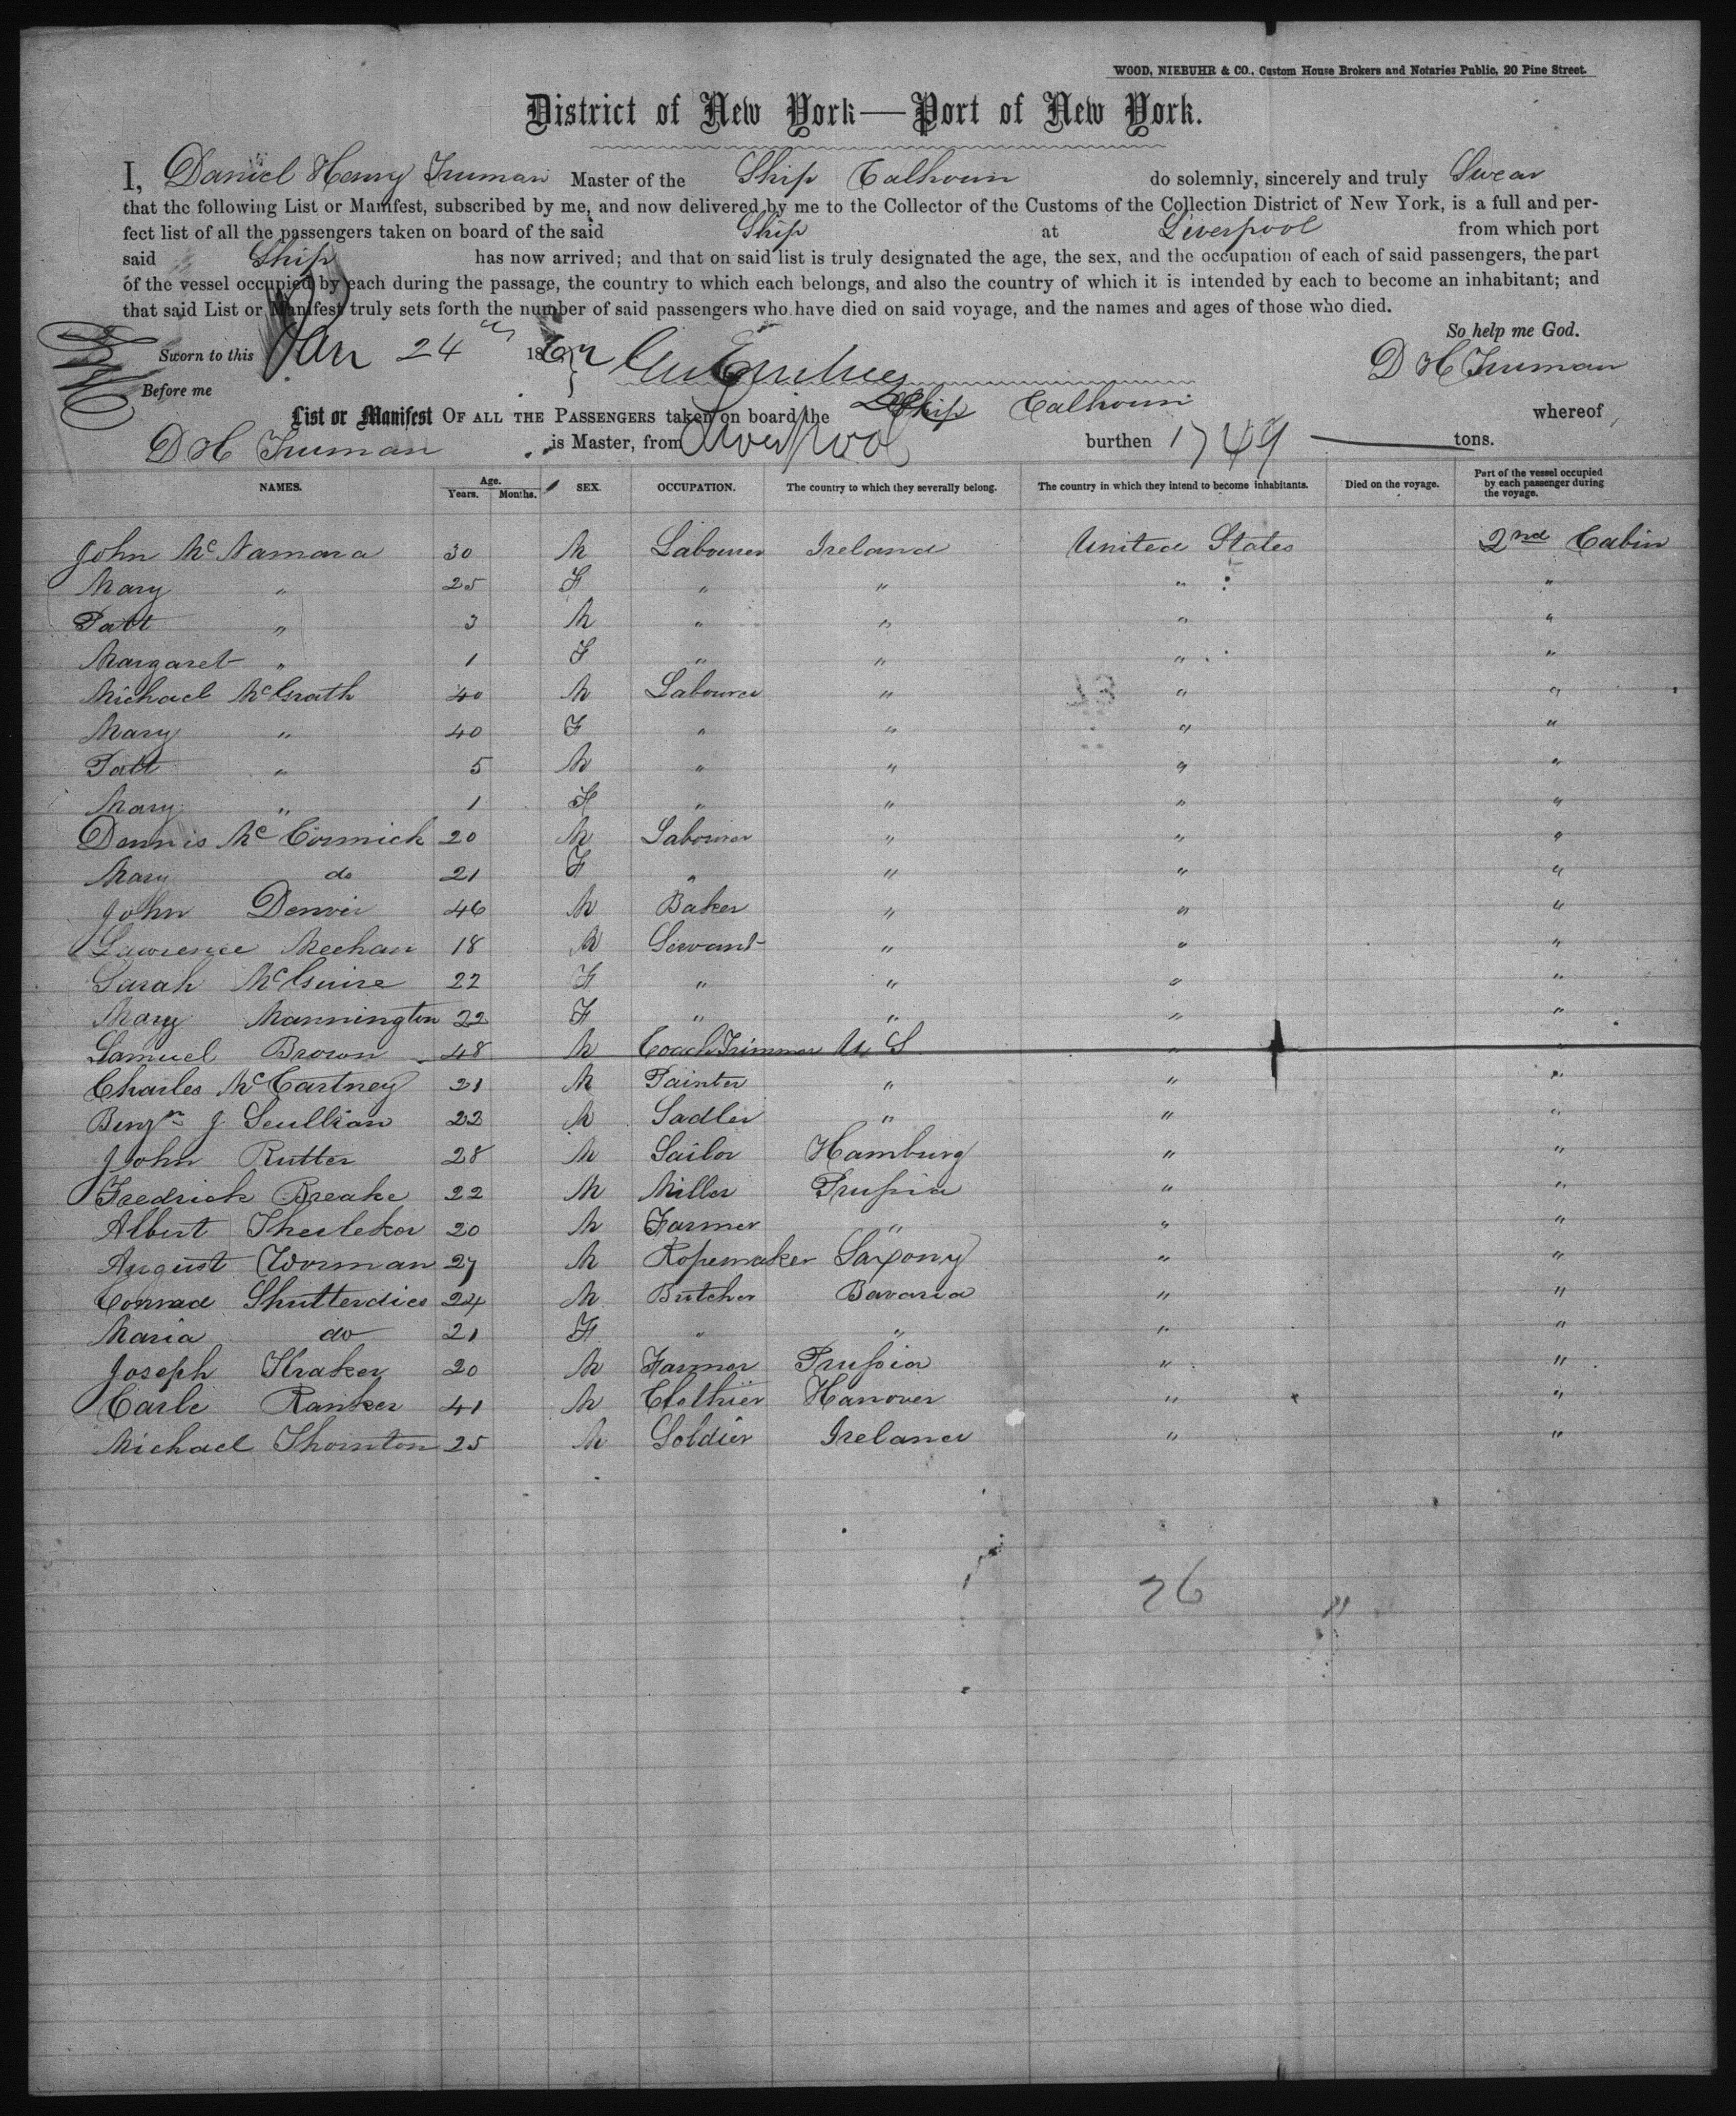 WOOD, NIEBUHR & CO., Custom House Brokers and Notaries Public, 20 Pine Street.
District of New York—Port of New York.
I, Daniel Henry Truman Master of the Ship Calhoun do solemnly, sincerely and truly Swear
that the following List or Manifest, subscribed by me, and now delivered by me to the Collector of the Customs of the Collection District of New York, is a full and per-
fect list of all the passengers taken on board of the said Ship at Liverpool from which port
said Ship has now arrived; and that on said list is truly designated the age, the sex, and the occupation of each of said passengers, the part
of the vessel occupied by each during the passage, the country to which each belongs, and also the country of which it is intended by each to become an inhabitant; and
that said List or Manifest truly sets forth the number of said passengers who have died on said voyage, and the names and ages of those who died.
So help me God.
Sworn to this Jan 24th 18
D H Truman
Before me
List or Manifest OF ALL THE PASSENGERS taken on board the Ship Calhoun whereof
D H Truman is Master, from Liverpool burthen 1749 tons.
NAMES. Age. Years. Months. SEX. OCCUPATION. The country to which they severally belong. The country in which they intend to become inhabitants. Died on the voyage. Part of the vessel occupied by each passenger during the voyage.
John McNamara 30 M Labourer Ireland United States 2nd Cabin
Mary " 25 F " " " "
Patt " 3 M " " " "
Margaret " 1 F " " " "
Michael McGrath 40 M Labourer " " "
Mary " 40 F " " " "
Patt " 5 M " " " "
Mary " 1 F " " " "
Dennis McCormick 20 M Labourer " " "
Mary do 21 F " " " "
John Denvir 46 M Baker " " "
Lawrence Meehan 18 M Servant " " "
Sarah McGuire 22 F " " " "
Mary Mannington 22 F " " " "
Samuel Brown 48 M Coach Trimmer U S " "
Charles McCartney 21 M Painter " " "
Benjn J Scullian 22 M Sadler " " "
John Rutter 28 M Sailor Hamburg " "
Fredrick Breake 22 M Miller Prussia " "
Albert 20 M Farmer " " "
August Worman 27 M Ropemaker Saxony " "
Conrad Shutterdies 24 M Butcher Bavaria " "
Maria do 21 F " " " "
Joseph Kraker 20 M Farmer Prussia " "
Carle Ranker 41 M Clothier Hanover " "
Michael Thornton 25 M Soldier Ireland " "
26